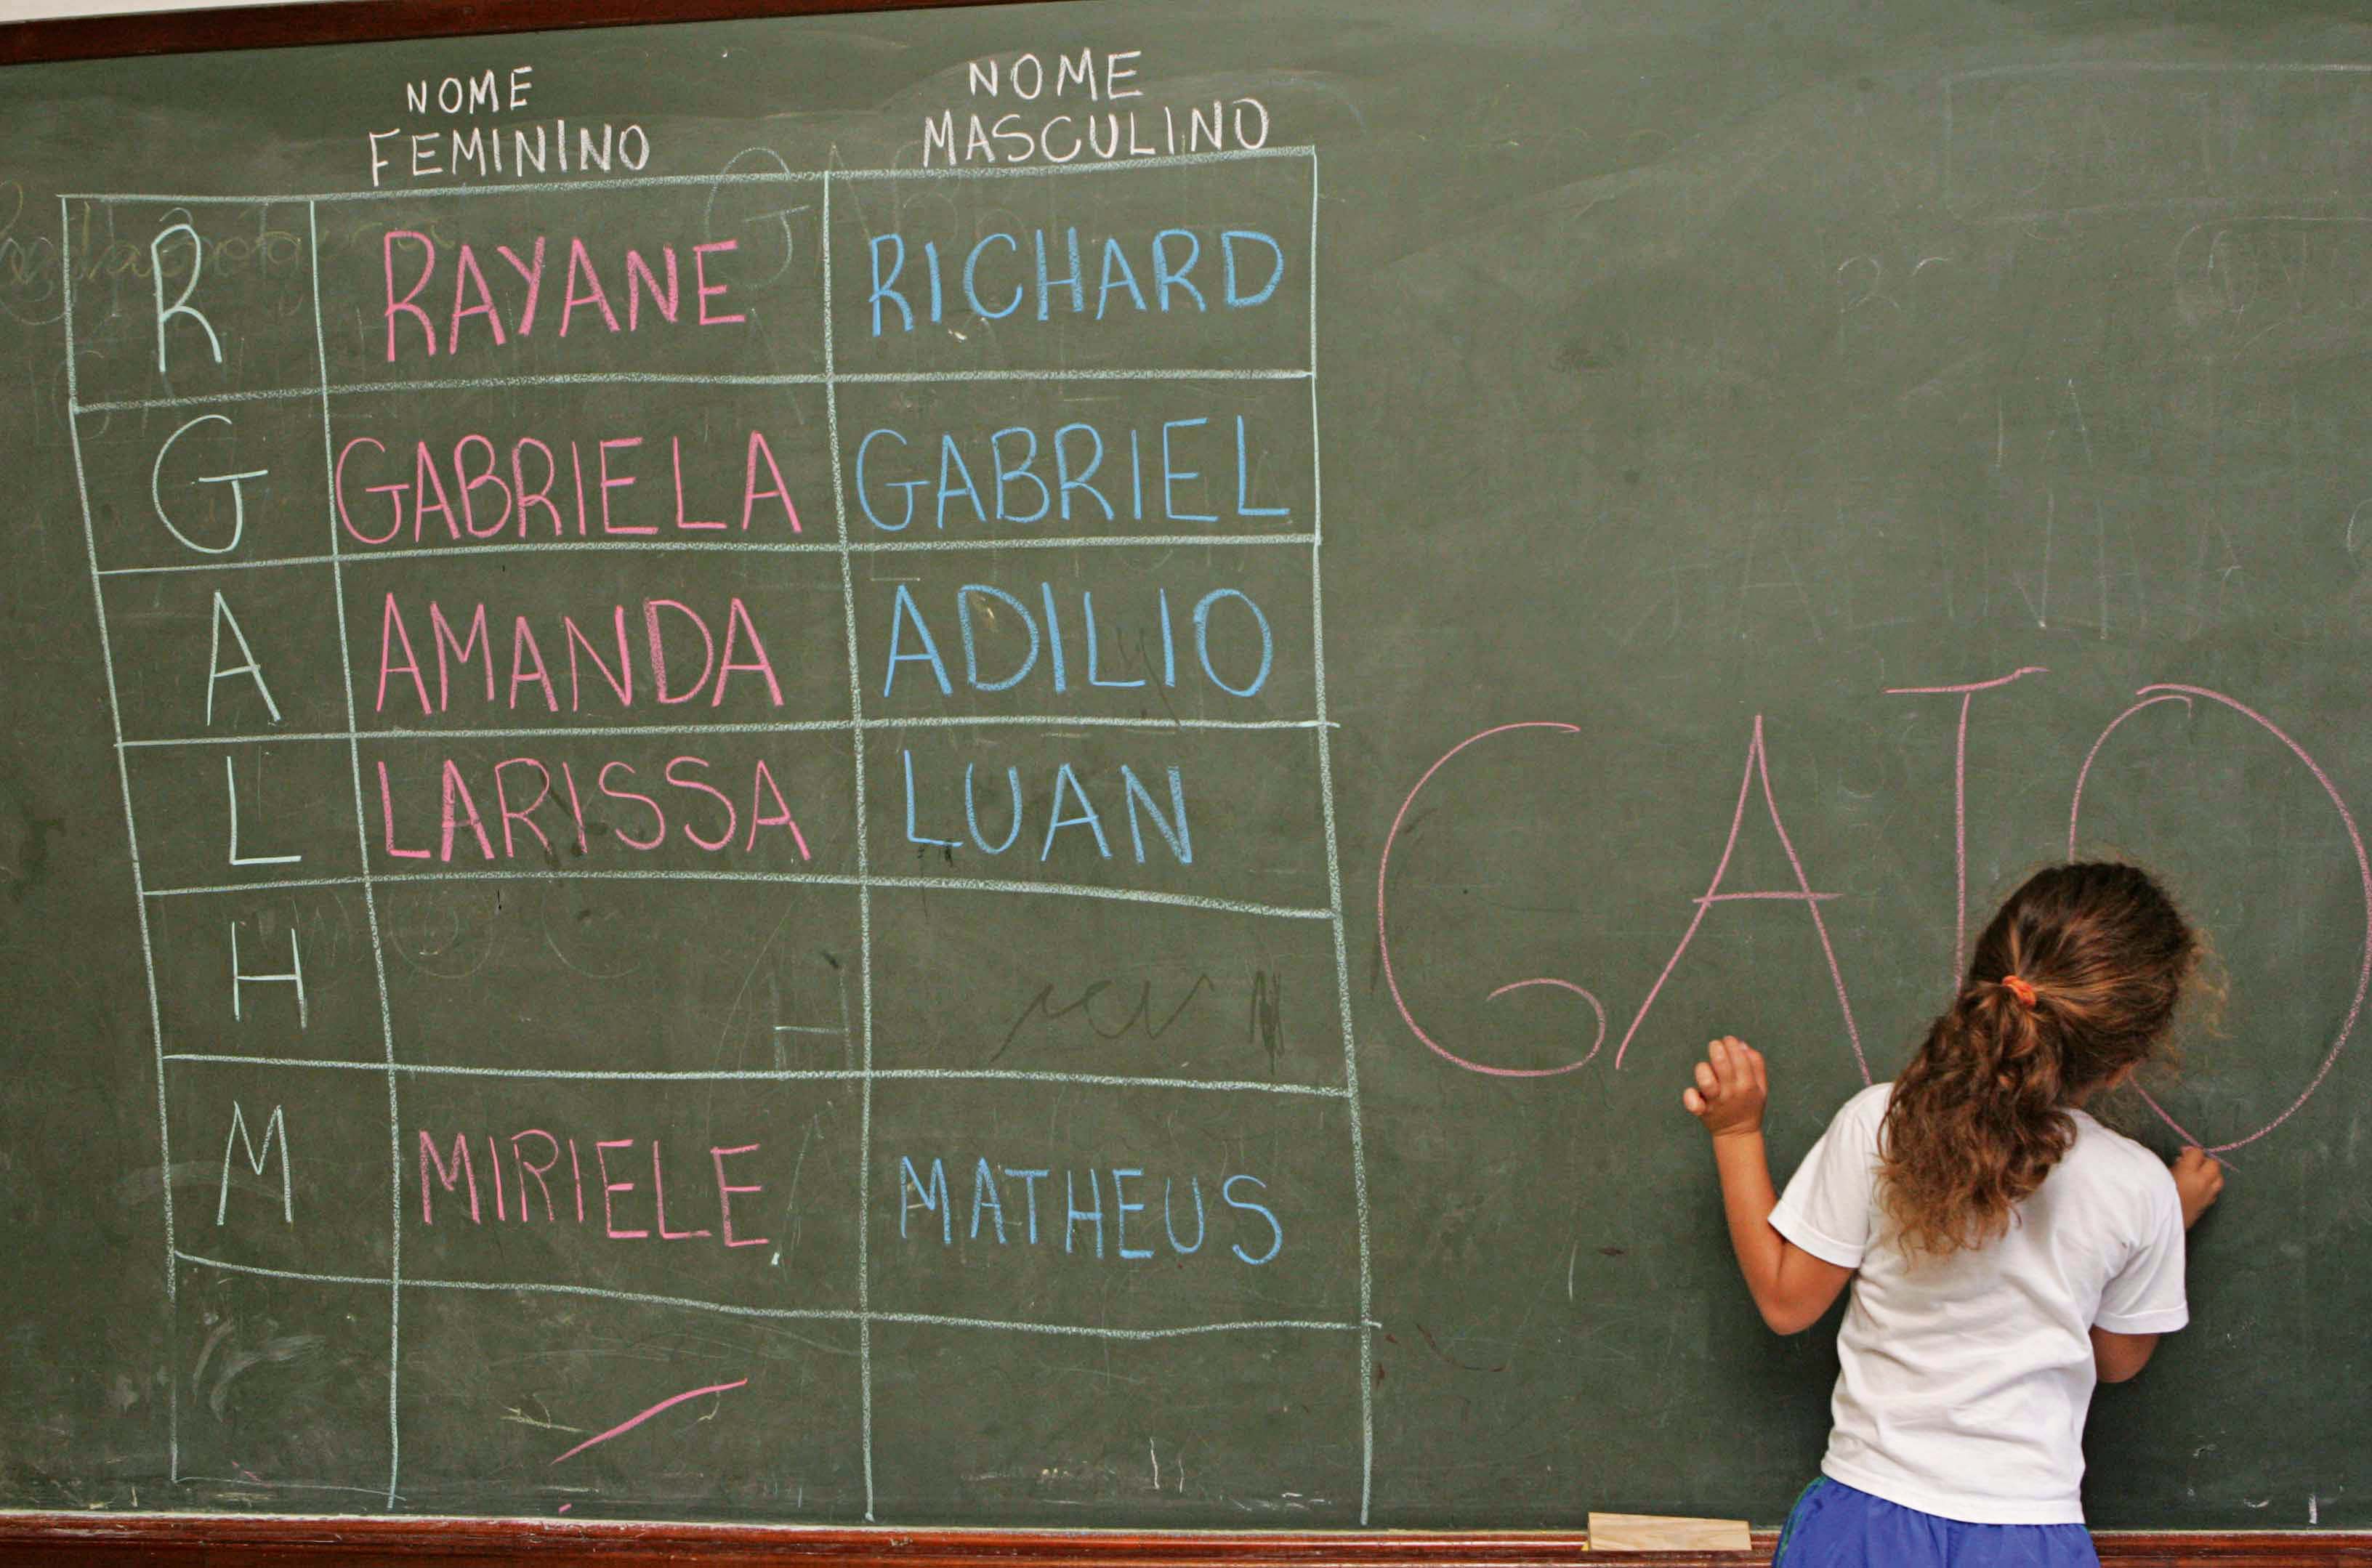 NOME
FEMININO
NOME
MASCULINO
R RAYANE RICHARD
G GABRIELA GABRIEL
A AMANDA ADILIO
L LARISSA LUAN
H
M MIRIELE MATHEUS
GATO